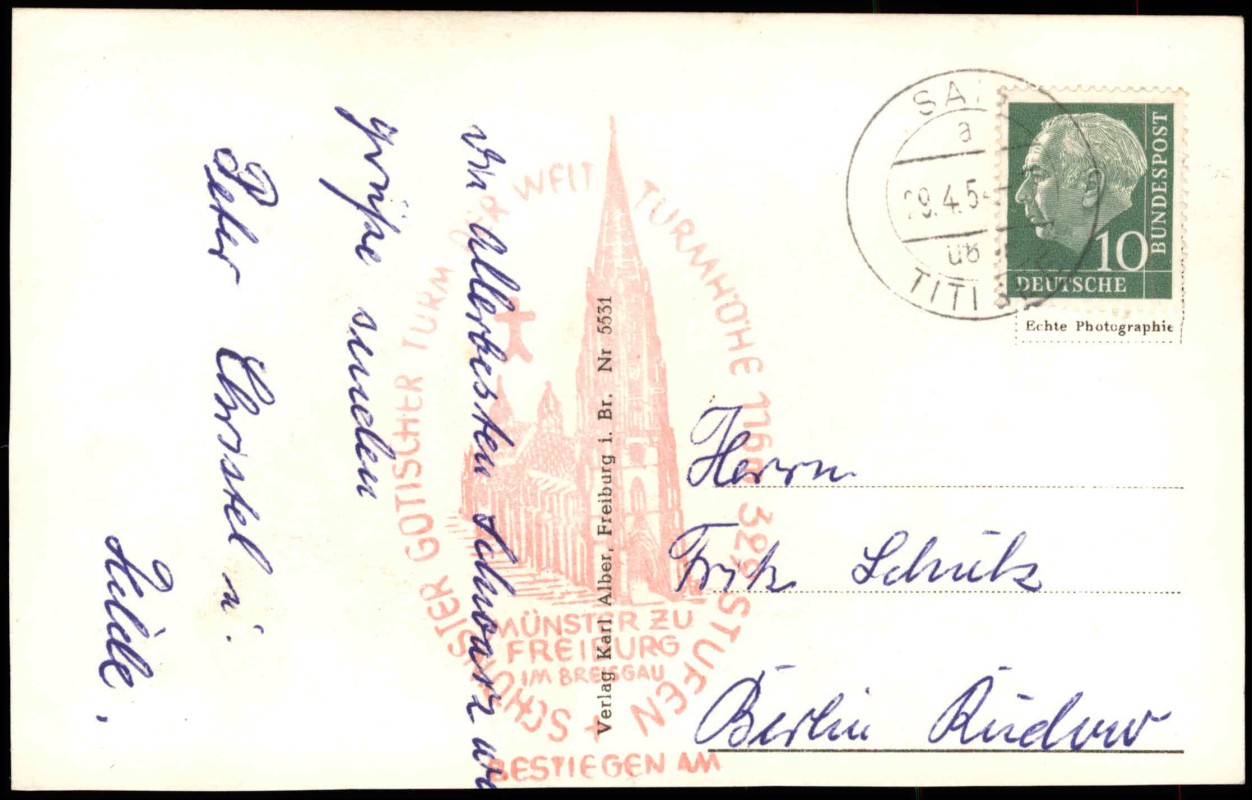 Die allerbesten Schwarzwa
grüße senden
Peter Christel u.
Hilde.
SCHÖNSTER GOTISCHER TURM DER WELT TURMHÖHE 116m 329 STUFEN
MÜNSTER ZU
FREIBURG
IM BREISGAU
BESTIEGEN AM
Verlag Karl Alber, Freiburg i. Br. Nr 5531
a
29.4.5
üb
TITISEE
10
BUNDESPOST
DEUTSCHE
Echte Photographie
Herrn
Fritz Schulz
Berlin Rudow